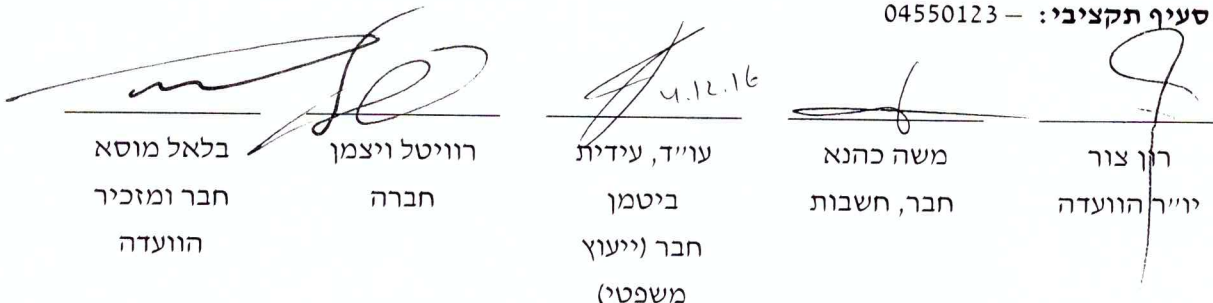 סעיף תקציבי: – 04550123
4.12.16
רון צור
יו״ר הוועדה
משה כהנא
חבר, חשבות
עו״ד, עידית
ביטמן
חבר (ייעוץ
משפטי)
רוויטל ויצמן
חברה
בלאל מוסא
חבר ומזכיר
הוועדה